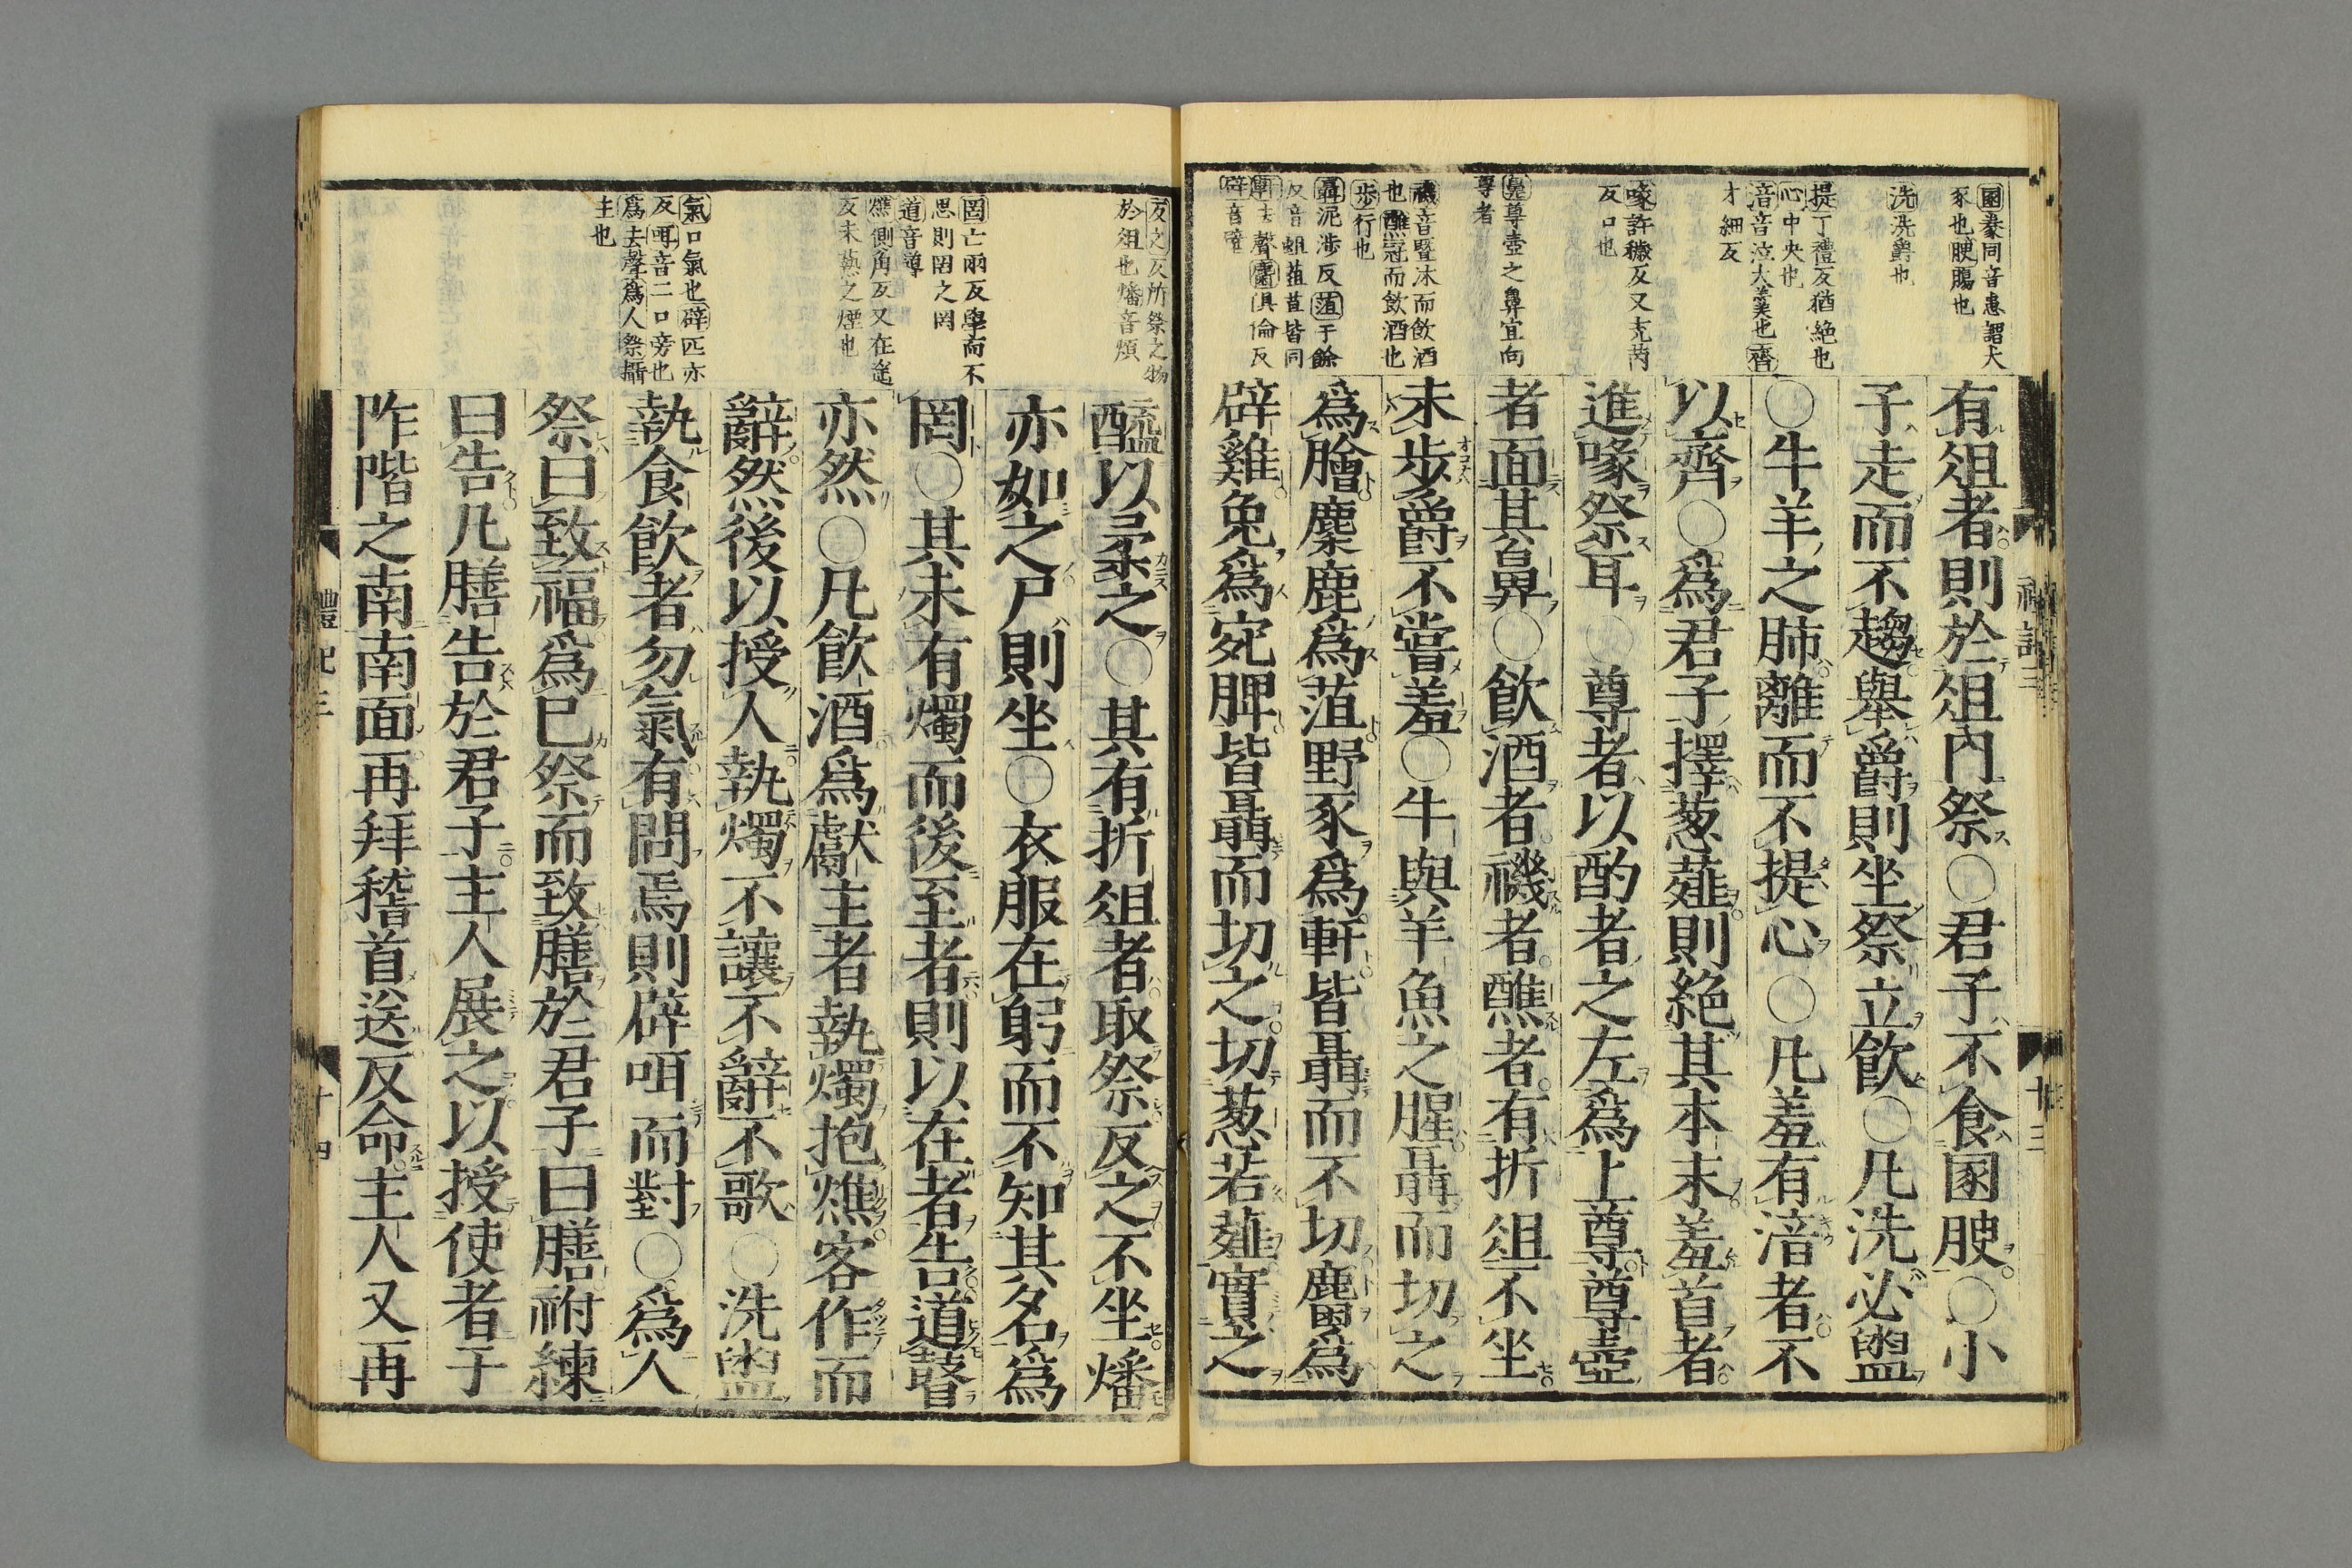 圂豢同音患謂犬
豕也腴腸也
洗洗爵也
提丁禮反猶絶也
心中央也
湆音泣大羹也齊
才細反
喙許穢反又充芮
反口也
鼻尊壺之鼻宜向
尊者
禨音曁沐而飲酒
也醮冠而飲酒也
步行也
聶泥涉反菹于餘
反音蛆菹苴皆同
軒去聲麕俱倫反
辟音璧
有俎者則於俎內祭○君子不食圂腴○小
子走而不趨舉爵則坐祭立飲○凡洗必盥
○牛羊之肺離而不提心○凡羞有湆者不
以齊○爲君子擇葱薤則絶其本末羞首者
進喙祭耳○尊者以酌者之左爲上尊尊壺
者面其鼻○飲酒者禨者醮者有折俎不坐
未步爵不嘗羞○牛與羊魚之腥聶而切之
爲膾麋鹿爲菹野豕爲軒皆聶而不切麕爲
辟雞兔爲宛脾皆聶而切之切葱若薤實之
禮記三
十三
反之反所祭之物
於俎也燔音煩
罔亡兩反學而不
思則罔之罔
道音導
燋側角反又在遙
反未爇之燭也
氣口氣也辟匹亦
反咡音二口旁也
爲去聲爲人祭攝
主也
醯以柔之○其有折俎者取祭反之不坐燔
亦如之尸則坐○衣服在躬而不知其名爲
罔○其未有燭而後至者則以在者告道瞽
亦然○凡飲酒爲獻主者執燭抱燋客作而
辭然後以授人執燭不讓不辭不歌○洗盥
執食飲者勿氣有問焉則辟咡而對○爲人
祭曰致福爲已祭而致膳於君子曰膳祔練
曰告凡膳告於君子主人展之以授使者于
阼階之南南面再拜稽首送反命主人又再
禮記三
十四